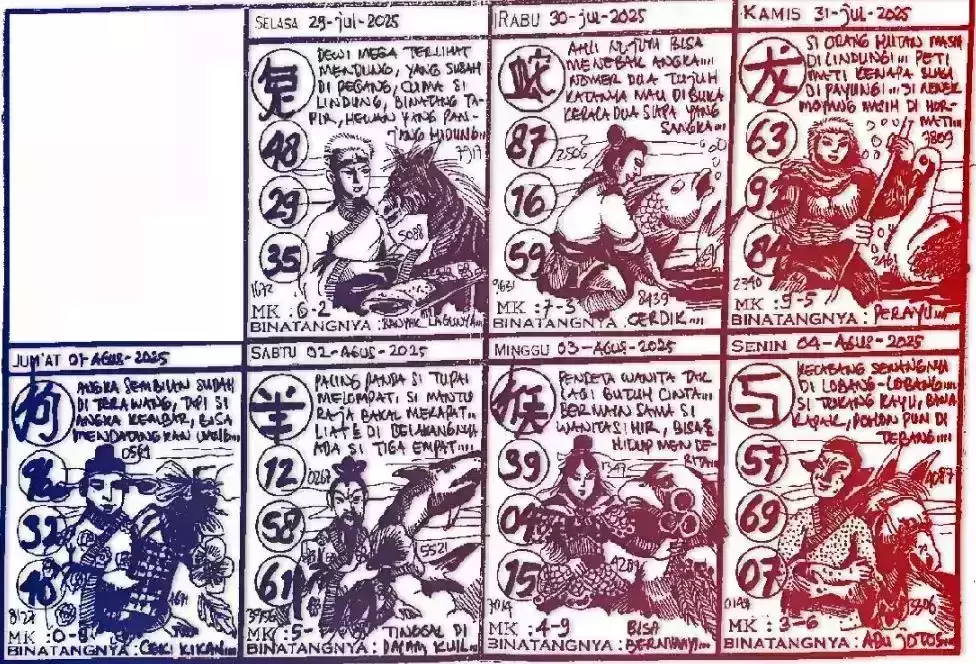 SELASA 29-jul-2025
DEWI MEGA TERLIHAT
MENDUNG, YANG SUDAH
DI PEGANG, CUMA SI
LINDUNG, BINATANG TA-
PIR, HEWAN YANG PAN-
JANG HIDUNG....
兔
48
29
35
5088
1672
MK : 6-2
BINATANGNYA : BANYAK LAGUNYA...
RABU 30-jul-2025
AHLI NUJUM BISA
MENEBAK ANGKA....
NOMER DUA TUJUH
KATANYA MAU DI BUKA
KEPALA DUA SIAPA YANG
SANGKA....
蛇
87
2506
16
59
8439
MK : 7-3
BINATANGNYA : CERDIK....
KAMIS 31-jul-2025
SI ORANG HUTAN MASIH
DI LINDUNGI.... PETI
MATI KENAPA SUKA
DI PAYUNGI.... SI NENEK
MOYANG MASIH DI HOR-
MATI...
龙
63
7809
92
84
2461
2340
MK : 9-5
BINATANGNYA : PERAYU....
JUM'AT 01-AGUS-2025
ANGKA SEMBILAN SUDAH
DI TERAWANG, TAPI SI
ANGKA KEMBAR, BISA
MENDATANGKAN
狗
0581
96
32
MK : 0-8
BINATANGNYA : CEKI KIKAN...
SABTU 02-AGUS-2025
PALING PANDAI SI TUPAI
MELOMPAT, SI MANTU
RAJA BAKAL MERAPAT...
DI BELAKANGNYA
ADA SI TIGA EMPAT....
羊
12
0267
58
5521
61
3956
MK : 5-
BINATANGNYA : TINGGAL DI
DALAM KUIL...
MINGGU 03-AGUS-2025
PENDETA WANITA TAK
LAGI BUTUH CINTA....
BERMAIN SAMA SI
WANITA SIHIR, BISA2
HIDUP MENDE-
RITA...
猴
39
1347
04
4209
15
7014
MK : 4-9
BINATANGNYA : BISA
BERNYANYI...
SENIN 04-AGUS-2025
KECABANG SENANGNYA
DI LOBANG-LOBANG....
SI TUKANG KAYU, BAWA
KAPAK, POHON PUN DI
TEBANG....
57
69
07
MK : 3-6
BINATANGNYA : ADU JOTOS...